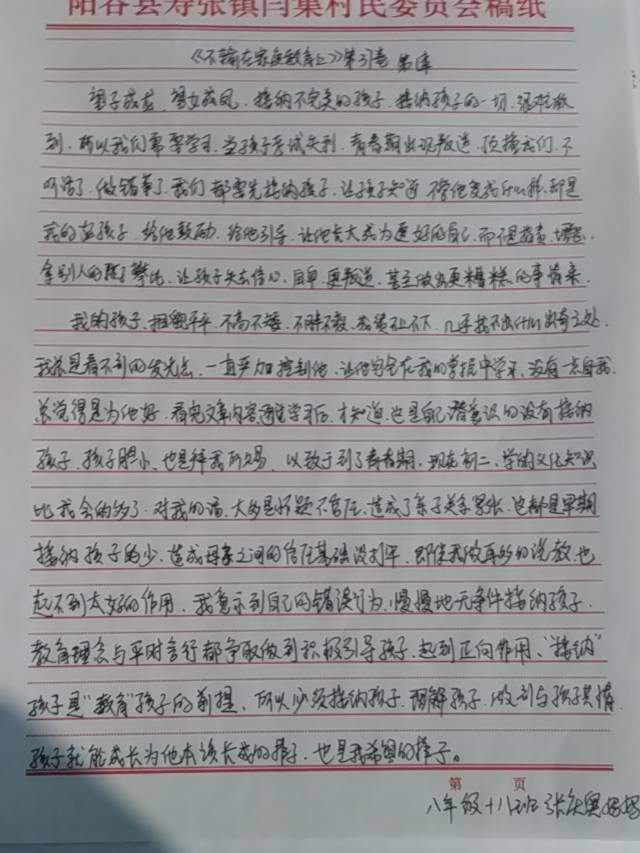 阳谷县寿张镇闫集村民委员会稿纸
《不输在家庭教育上》第31章 第 库
望子成龙,望女成凤,接纳不完美的孩子,接纳孩子的一切,很难做
到,所以我们需要学习,当孩子考试失利,青春期出现叛逆,顶撞我们,不
听话了,做错事了,我们都要先接纳孩子,让孩子知道不管他变成什么样,都是
我的好孩子,给他鼓励,给他引导,让他长大成为更好的自己,而不是指责、埋怨,
拿别人的孩子攀比,让孩子失去信心,自卑,更叛逆,甚至做出更糟糕的事情来。
我的孩子,相貌平平,不高不矮,不胖不瘦,成绩不上不下,几乎找不出什么出奇之处,
我总是看不到的发光点,一直严加控制他,让他完全在我的掌握中学习,没有一点自我,
总觉得是为他好,看完文章内容通过学习后,才知道,也是自己潜意识的没有接纳
孩子,孩子胆小,也是拜我所赐,以致于到了青春期,现在初二,学的文化知识
比我会的多了,对我的话,大多是怀疑不信任,造成了亲子关系紧张,也都是早期
接纳孩子的少,造成母亲之间的信任基础没打牢,即使我做再多的说教,也
起不到太好的作用,我意识到自己的错误行为,慢慢地无条件接纳孩子,
教育理念与平时言行都争取做到积极引导孩子,起到正向作用、“接纳”
孩子是“教育”孩子的前提,所以必须接纳孩子,理解孩子,做到与孩子共情,
孩子就能成长为他本该长成的样子,也是我希望的样子。
第 页
八年级十八班 张庆 妈妈